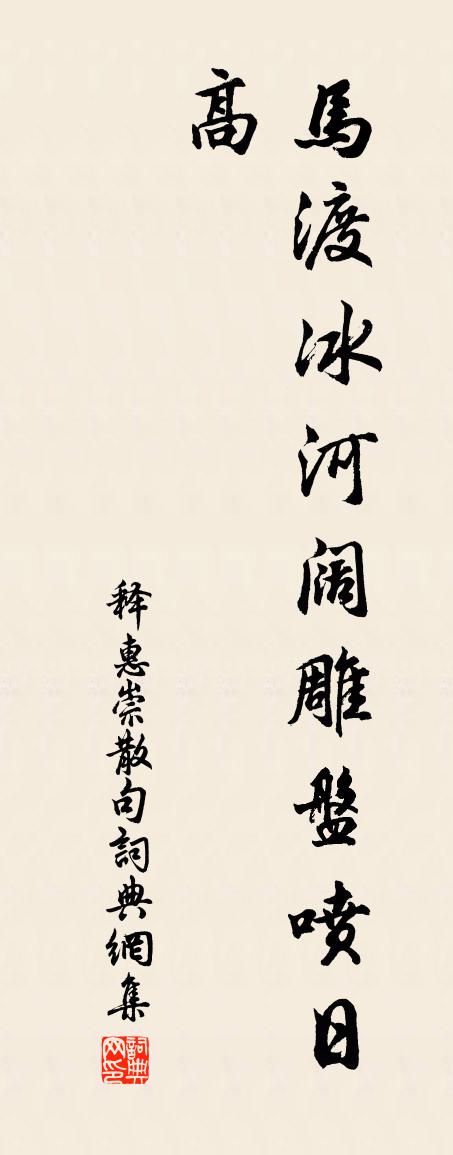 馬渡冰河阔雕盤噴日
高
释惠崇散句詞典網集
詞典网印